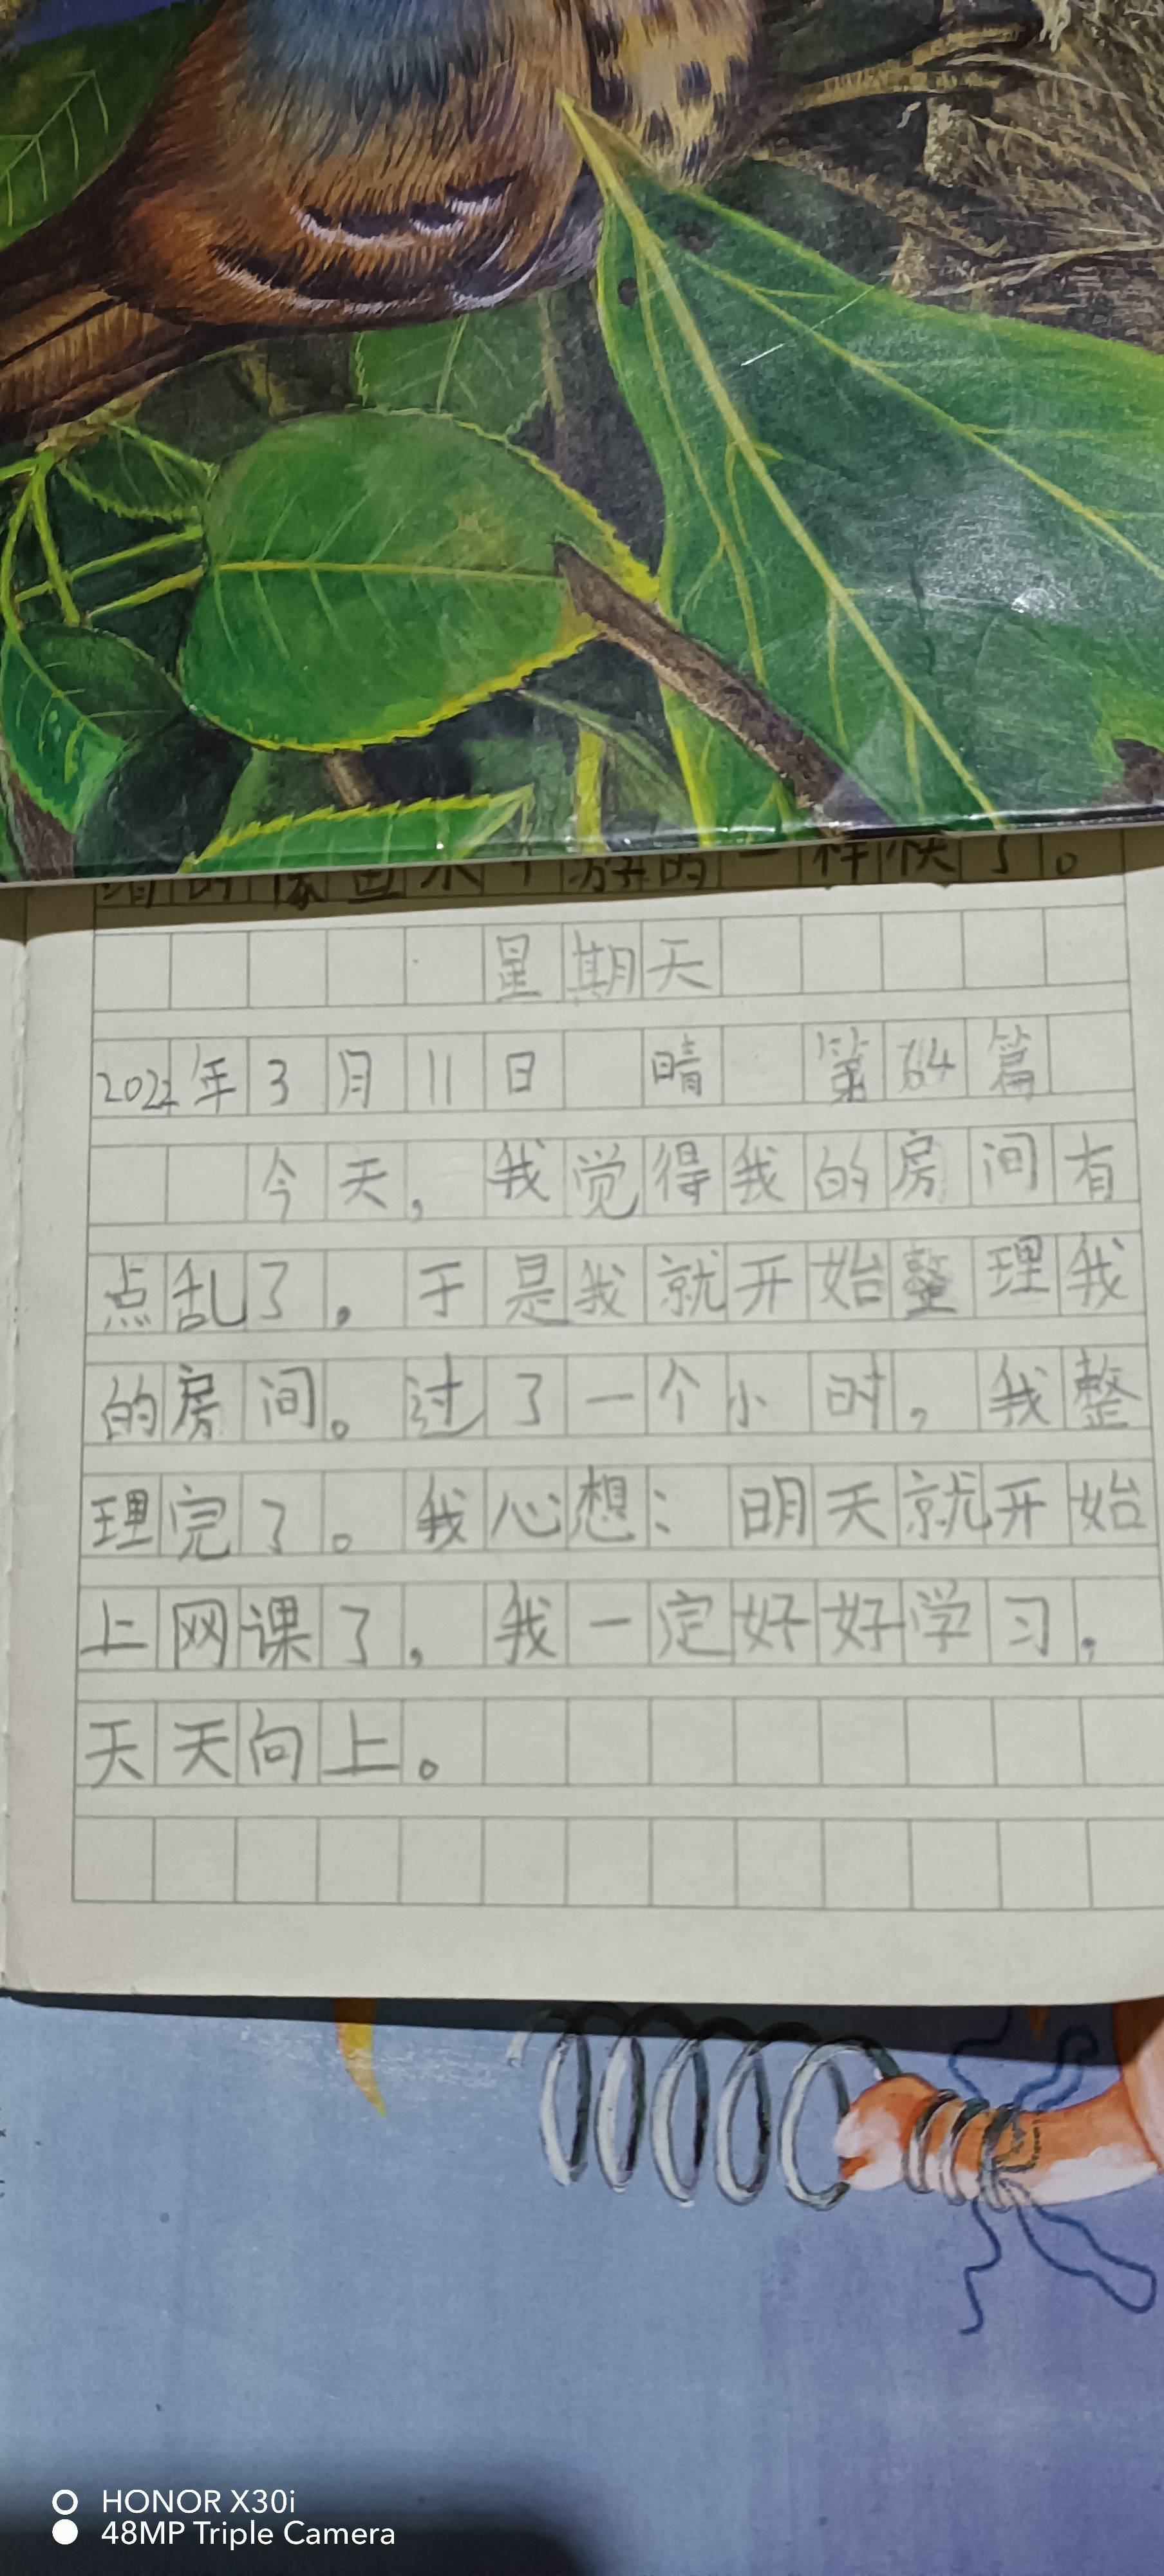 的一样快了。
星期天
2022年3月11日 晴 第64篇
今天，我觉得我的房间有
点乱了，于是我就开始整理我
的房间。过了一个小时，我整
理完了。我心想：明天就开始
上网课了，我一定好好学习，
天天向上。
HONOR X30i
48MP Triple Camera